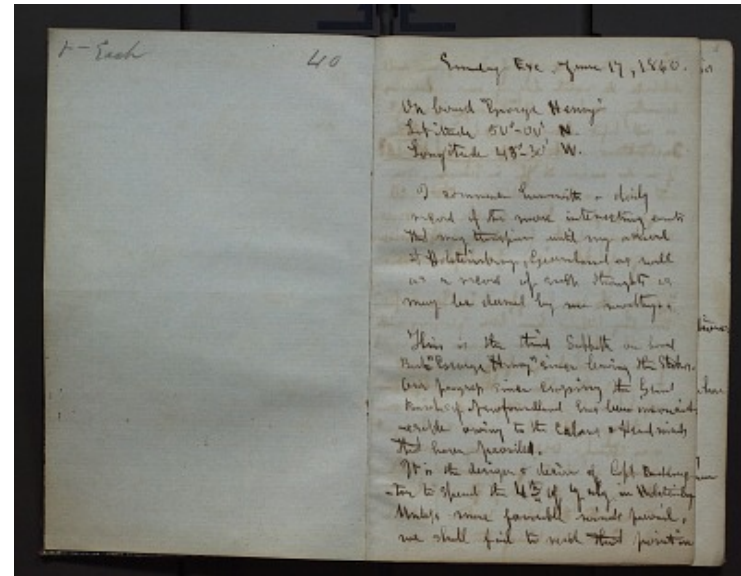 Each 40
Sunday Eve, June 17, 1860.
On board "George Henry"
Latitude 50°-00' N.
Longitude 48°-30' W.
I commence herewith a daily
record of the more interesting events
that may transpire until my arrival
at Holsteinborg, Greenland as well
as a record of such thoughts as
may be deemed by me worthy.
This is the third Sabbath on board
Bark "George Henry" since leaving the States.
Our progress since crossing the Grand
Banks of Newfoundland has been
owing to the Calms & Head winds
that have prevailed.
It is the design & desire of Capt. Budding-
-ton to spend the 4th of July in Holsteinborg
Unless more favorable winds prevail,
we shall fail to reach that point in